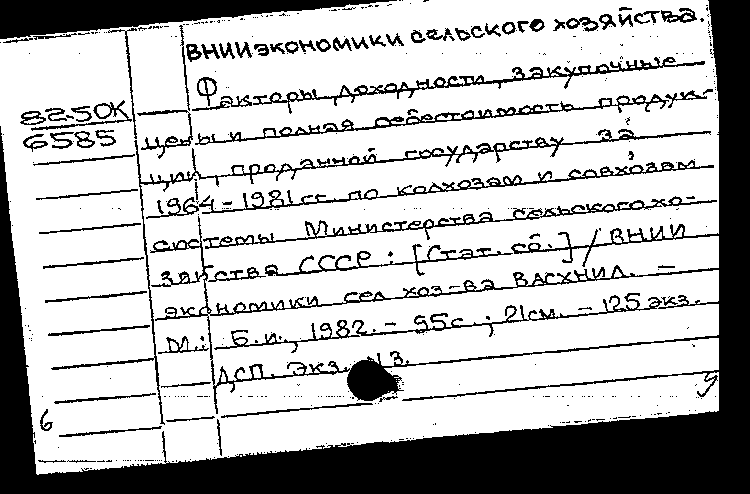 ВНИИ экономики сельского хозяйства.
Факторы доходности, закупочные
82-5ОК
6585
цены и полная себестоимость продук-
ции, проданной государству за
1964-1981 гг. по колхозам и совхозам
системы Министерства сельского хо-
зяйства СССР: [Стат. сб.] / ВНИИ
экономики сел хоз-ва ВАСХНИЛ. -
М.: Б.и., 1982. - 95с.; 21см. - 125 экз.
ДСП. Экз. N 3.
6